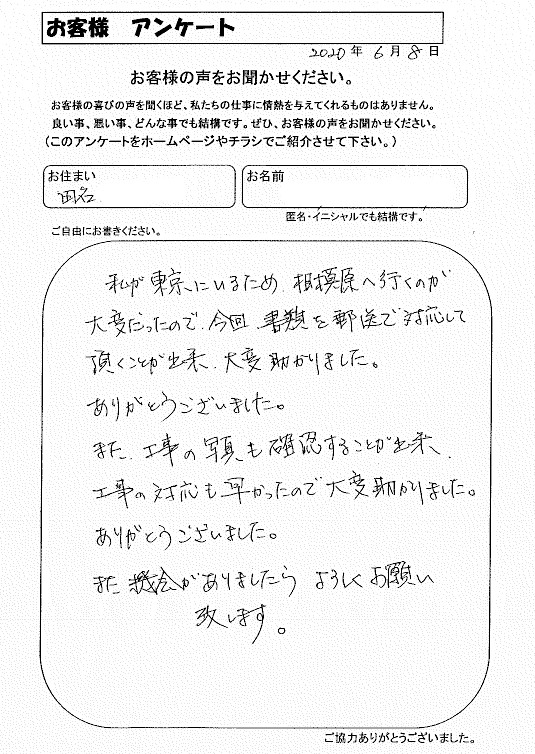 お客様 アンケート
2020年 6月 8日
お客様の声をお聞かせください。
お客様の喜びの声を聞くほど、私たちの仕事に情熱を与えてくれるものはありません。
良い事、悪い事、どんな事でも結構です。ぜひ、お客様の声をお聞かせください。
(このアンケートをホームページやチラシでご紹介させて下さい。)
お住まい
田名
お名前
匿名・イニシャルでも結構です。
ご自由にお書きください。
私が東京にいるため、相模原へ行くのが
大変だったので、今回 書類を郵送で対応して
頂くことが出来、大変助かりました。
ありがとうございました。
また、工事の写真も確認することが出来、
工事の対応も早かったので大変助かりました。
ありがとうございました。
また機会がありましたら よろしくお願い
致します。
ご協力ありがとうございました。